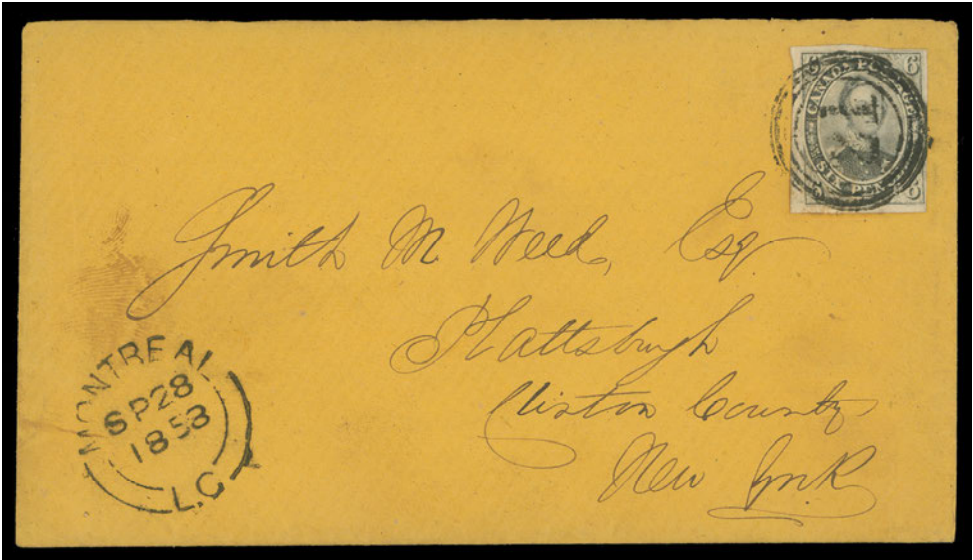 6 6
CANADA POSTAGE
SIX PEN
6
21
Smith M Weed, Esq
Plattsburgh
Clinton County
New York
MONTREAL
SP 28
1858
L.C